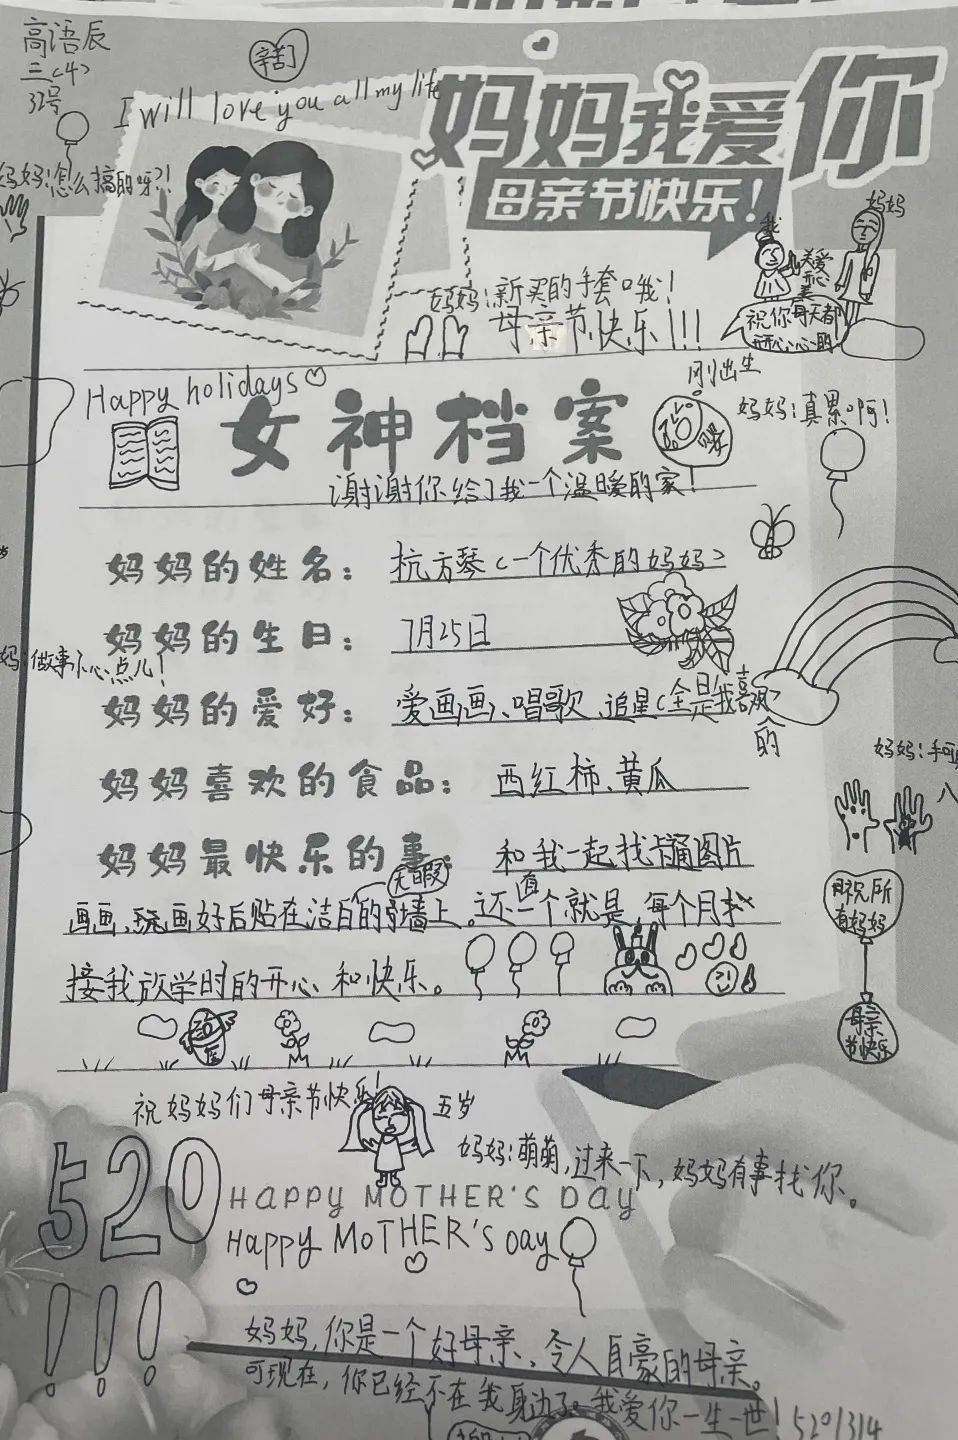 高语辰
三(4)
32号
辛苦了
I will love you all my life
妈妈我爱你
母亲节快乐!
妈妈:怎么搞的呀?!
妈妈
我
祝你每天都
开开心心的
妈妈:新买的手套哦!
母亲节快乐!!!
Happy holidays
女神档案
刚出生
妈妈:真累啊!
谢谢你给了我一个温暖的家!
妈妈的姓名: 杭方琴(一个优秀的妈妈)
妈妈的生日: 7月25日
妈:做事小心点儿!
妈妈的爱好: 爱画画、唱歌、追星(全是我喜欢的)
妈妈喜欢的食品: 西红柿、黄瓜
妈妈:手
妈妈最快乐的事: 和我一起找卡通图片
画画,玩画好后贴在洁白无暇的墙上。还有一个就是,每个月
接我放学时的开心和快乐。
祝所
有妈妈
母亲
节快乐
祝妈妈们母亲节快乐!
五岁
妈妈:萌萌,过来一下,妈妈有事找你。
520
!!!
HAPPY MOTHER'S DAY
Happy MOTHER's Day
妈妈,你是一个好母亲、令人自豪的母亲。
可现在,你已经不在我身边了。我爱你一生一世!5201314